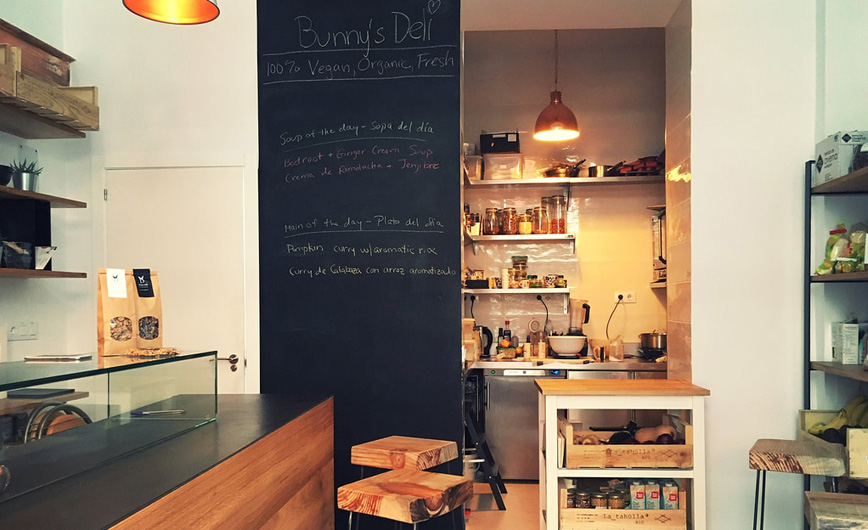 Bunny's Deli
100% Vegan, Organic, Fresh
Soup of the day - Sopa del día
Bedroot + Ginger Cream Soup
Crema de Ramolacha + Jenjibre
Main of the day - Plato del día
Pumpkin curry w/ aromatic rice
Curry de Calabaza con arroz aromatizado
la taholla
la taholla